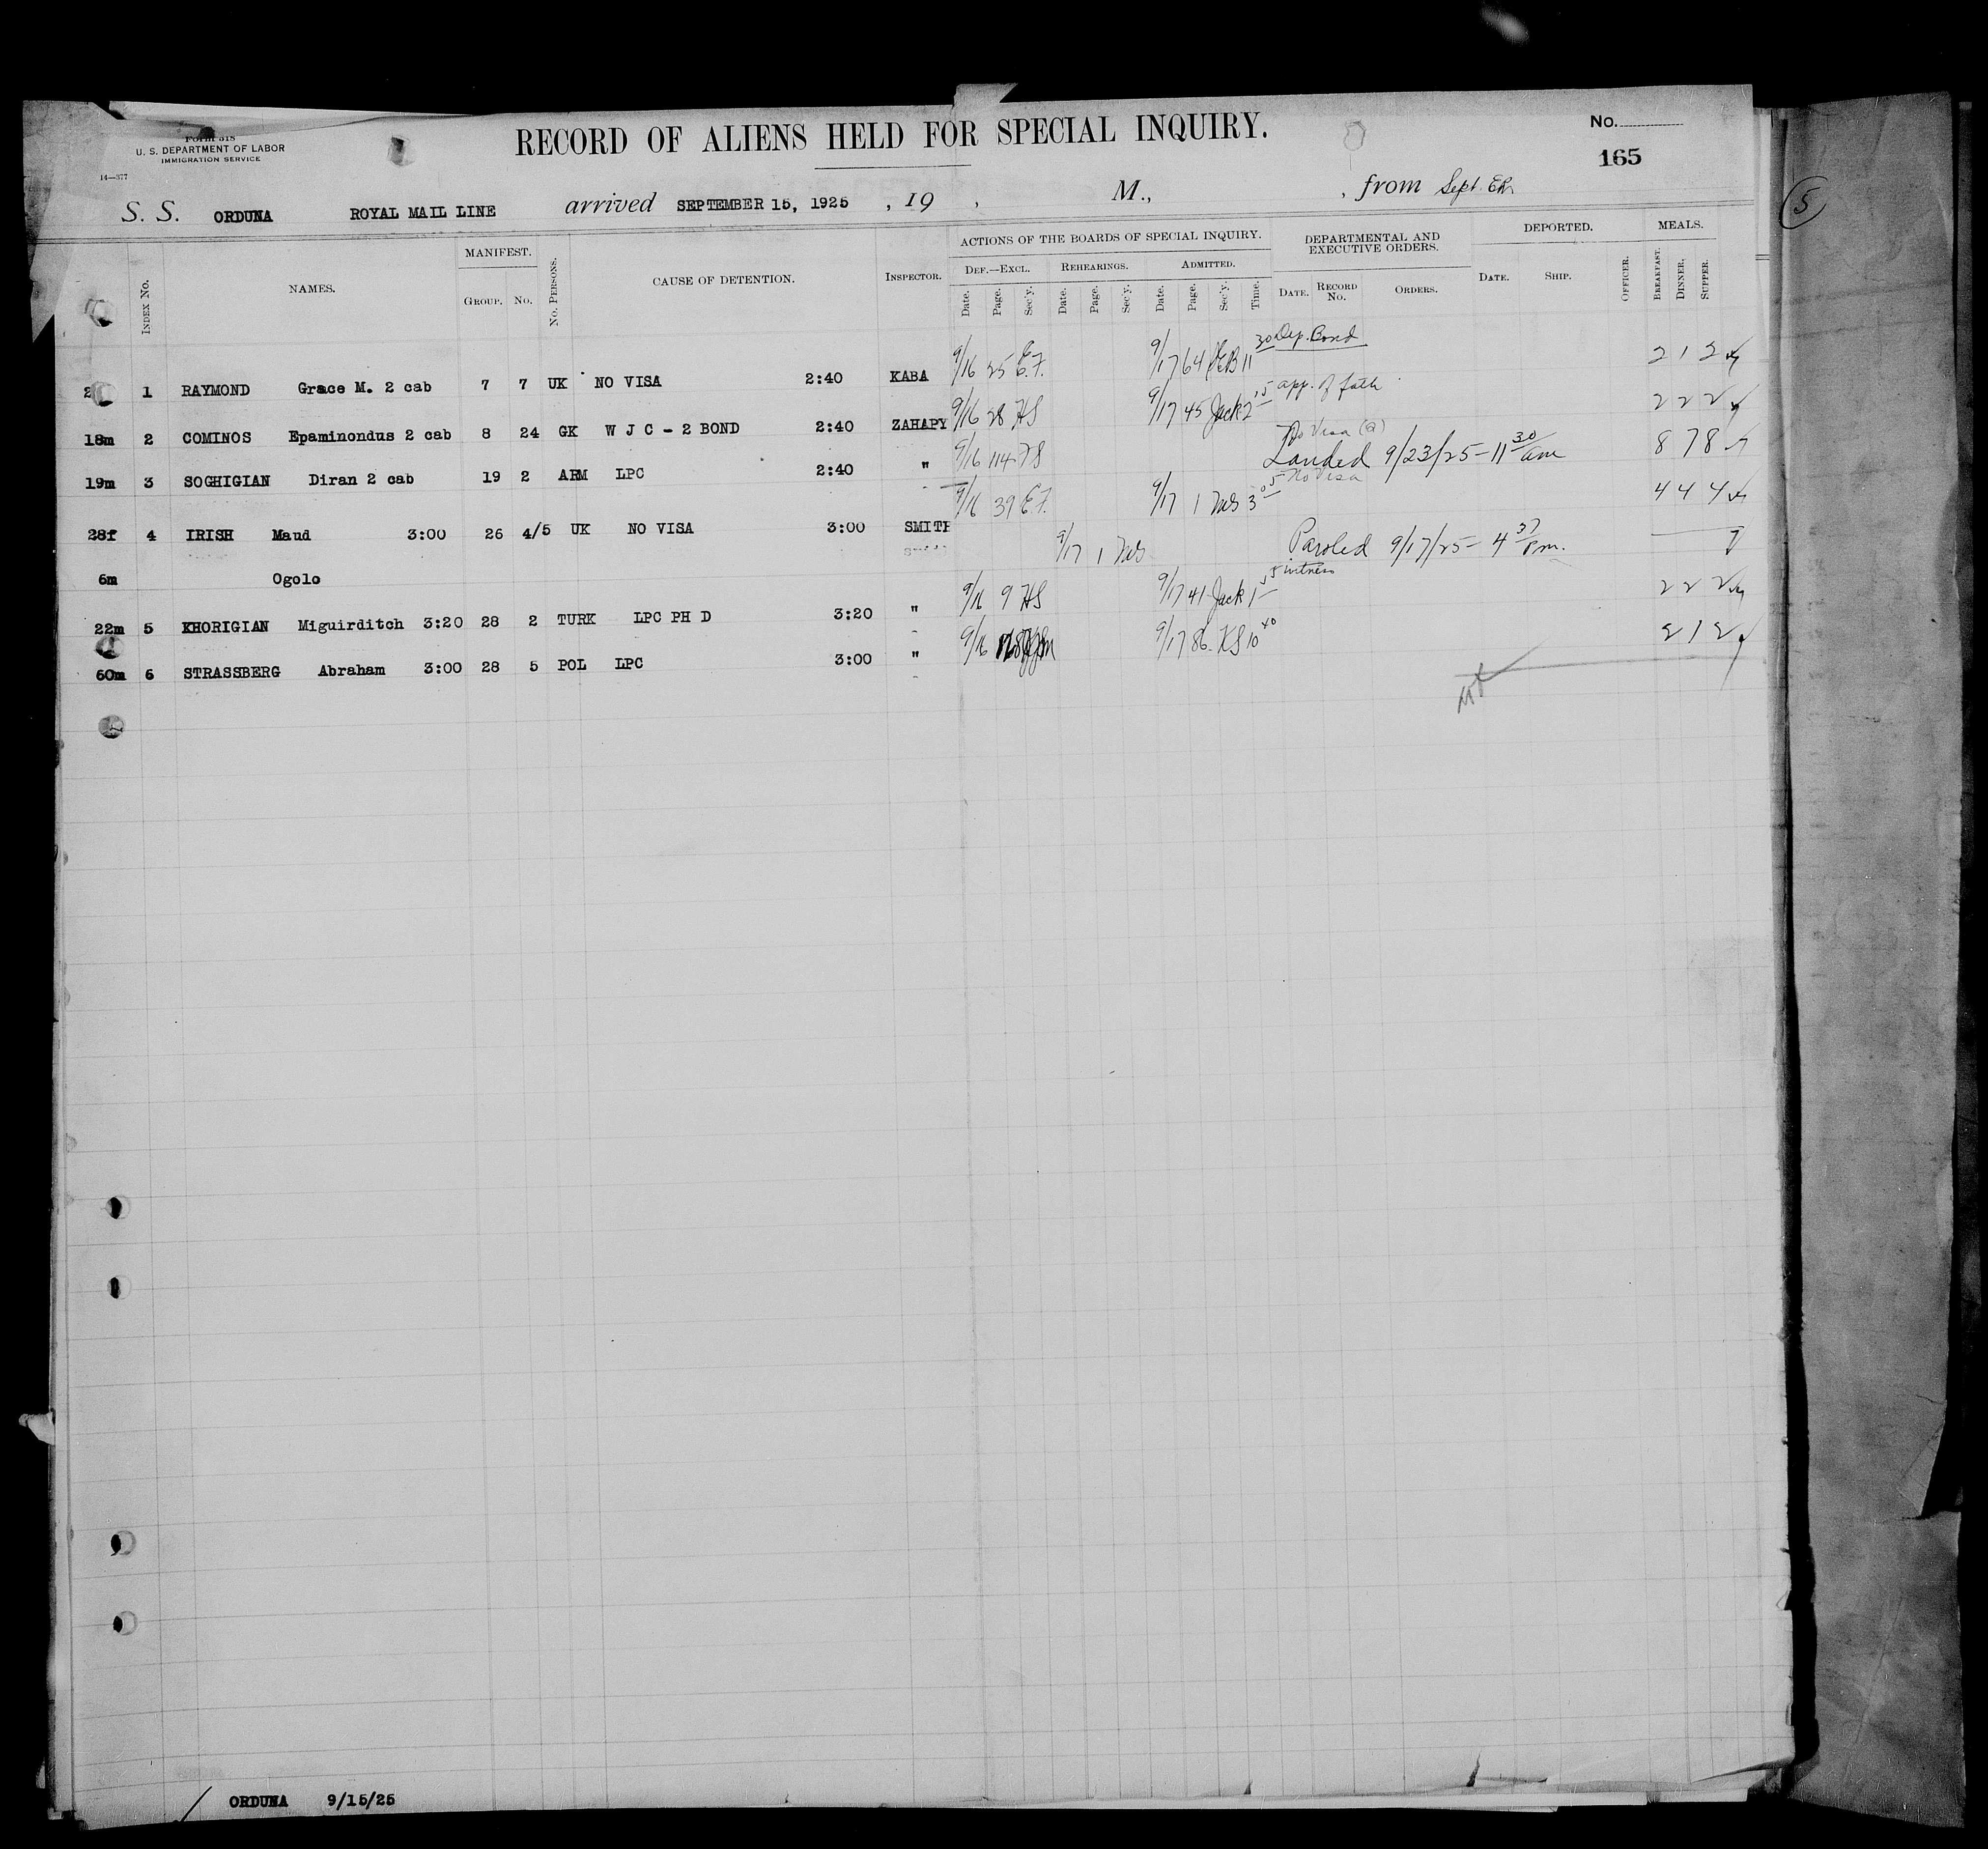 Form 518
U. S. DEPARTMENT OF LABOR
IMMIGRATION SERVICE
14—377
RECORD OF ALIENS HELD FOR SPECIAL INQUIRY.
No.
165
S. S. ORDUNA ROYAL MAIL LINE arrived SEPTEMBER 15, 1925 , 19 , M., , from Sept.
5
INDEX NO. NAMES. MANIFEST. GROUP. NO. NO. PERSONS. CAUSE OF DETENTION. INSPECTOR.
ACTIONS OF THE BOARDS OF SPECIAL INQUIRY.
DEF.—EXCL. Date. Page. Sec'y. REHEARINGS. Date. Page. Sec'y. ADMITTED. Date. Page. Sec'y. Time.
DEPARTMENTAL AND EXECUTIVE ORDERS. DATE. RECORD NO. ORDERS.
DEPORTED. DATE. SHIP. OFFICER.
MEALS. BREAKFAST. DINNER. SUPPER.
1 RAYMOND Grace M. 2 cab 7 7 UK NO VISA 2:40 KABA 9/16 25 E.F. 9/17 64 11 30 Dep. Bond 2 1 2
18m 2 COMINOS Epaminondus 2 cab 8 24 GK W J C - 2 BOND 2:40 ZAHAPY 9/16 28 HS 9/17 45 Jack 2 15 app. of fath 2 2 2
19m 3 SOGHIGIAN Diran 2 cab 19 2 ARM LPC 2:40 " 9/16 114 No Visa (a) Landed 9/23/25 - 11 30 am 8 7 8
28f 4 IRISH Maud 3:00 26 4/5 UK NO VISA 3:00 SMITH 9/16 39 E.F. 9/17 1 3 05 No Visa 4 4 4
6m Ogolo 9/17 1 Paroled 9/17/25 - 4 37 Pm.
22m 5 KHORIGIAN Miguirditch 3:20 28 2 TURK LPC PH D 3:20 " 9/16 9 HS 9/17 41 Jack 1 witness 2 2 2
60m 6 STRASSBERG Abraham 3:00 28 5 POL LPC 3:00 " 9/16 9/17 86 KS 10 40 2 1 2
ORDUNA 9/15/25